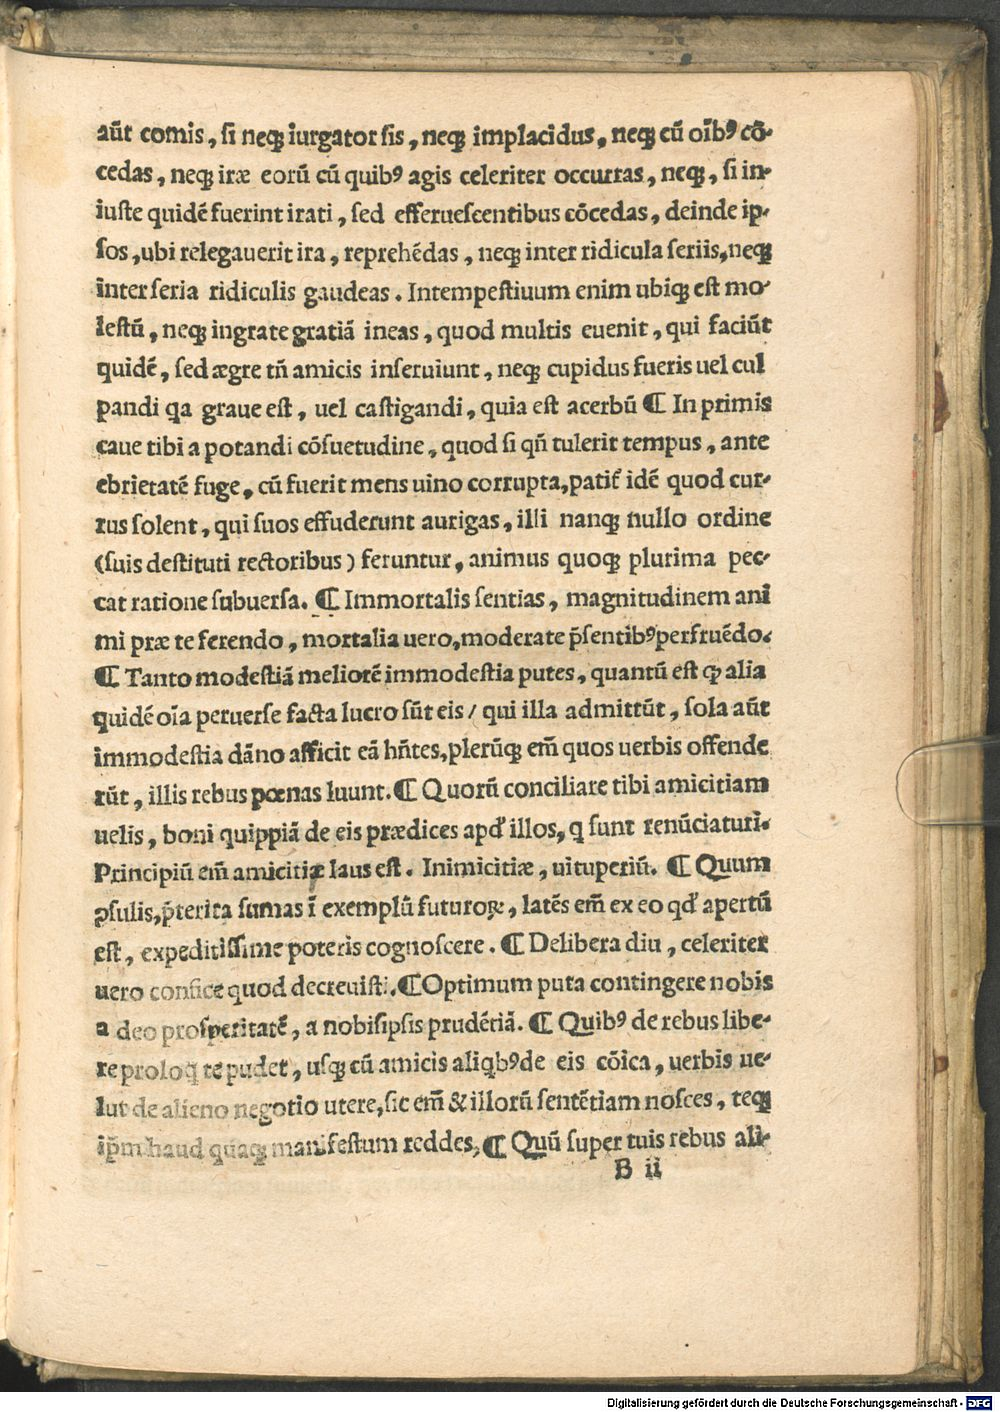 aũt comis, si neqꝫ iurgator sis, neqꝫ implacidus, neqꝫ cũ oĩbꝰ cõ-
cedas, neqꝫ iræ eorũ cũ quibꝰ agis celeriter occurras, neqꝫ, si in-
iuste quidẽ fuerint irati, sed efferuescentibus cõcedas, deinde ip-
sos, ubi relegauerit ira, reprehẽdas, neqꝫ inter ridicula seriis, neqꝫ
inter seria ridiculis gaudeas. Intempestiuum enim ubiqꝫ est mo-
lestũ, neqꝫ ingrate gratiã ineas, quod multis euenit, qui faciũt
quidẽ, sed ægre tñ amicis inseruiunt, neqꝫ cupidus fueris uel cul
pandi qa graue est, uel castigandi, quia est acerbũ ¶ In primis
caue tibi a potandi cõsuetudine, quod si qñ tulerit tempus, ante
ebrietatẽ fuge, cũ fuerit mens uino corrupta, patit᷑ idẽ quod cur-
rus solent, qui suos effuderunt aurigas, illi nanqꝫ nullo ordine
(suis destituti rectoribus) feruntur, animus quoqꝫ plurima pec-
cat ratione subuersa. ¶ Immortalis sentias, magnitudinem ani
mi præ te ferendo, mortalia uero, moderate p̃sentibꝰ perfruẽdo.
¶ Tanto modestiã meliorẽ immodestia putes, quantũ est ꝙ alia
quidẽ oĩa peruerse facta lucro sũt eis / qui illa admittũt, sola aũt
immodestia dãno afficit eã hñtes, plerũqꝫ em̃ quos uerbis offende
rũt, illis rebus pœnas luunt. ¶ Quorũ conciliare tibi amicitiam
uelis, boni quippiã de eis prædices apđ illos, q sunt renũciaturi.
Principiũ em̃ amicitiæ laus est. Inimicitiæ, uituperiũ. ¶ Quum
ꝯsulis, p̃terita sumas ĩ exemplũ futuroꝝ, latẽs em̃ ex eo qđ apertũ
est, expeditissime poteris cognoscere. ¶ Delibera diu, celeriter
uero confice quod decreuisti. ¶ Optimum puta contingere nobis
a deo prosperitatẽ, a nobisipsis prudẽtiã. ¶ Quibꝰ de rebus libe-
re proloq te pudet, usqꝫ cũ amicis aliqbꝰ de eis cõica, uerbis ue-
lut de alieno negotio utere, sic em̃ & illorũ sentẽtiam nosces, teqꝫ
ip̃m haud quaqꝫ manifestum reddes, ¶ Quũ super tuis rebus ali-
B ii
Digitalisierung gefördert durch die Deutsche Forschungsgemeinschaft - DFG